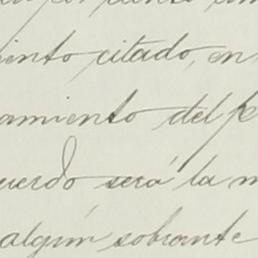 iento citado, en
amiento del p
uerdo será la m
algún sobrante